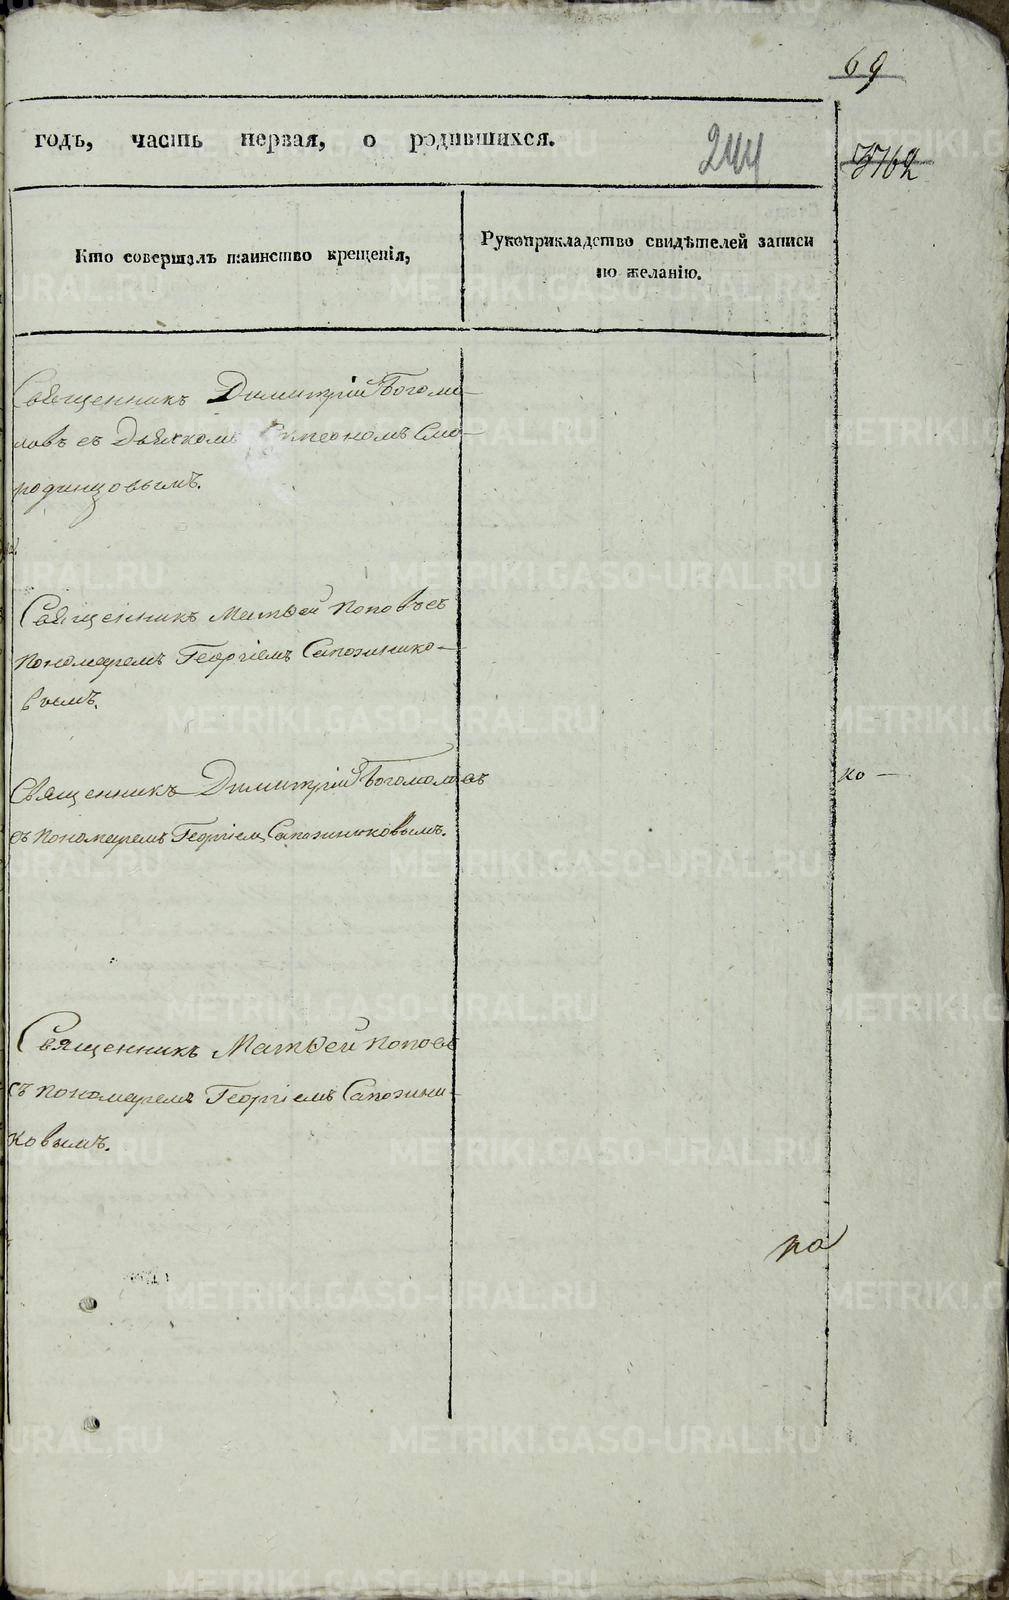 69
годъ, часть первая, о родившихся.
244
Кто совершалъ таинство крещенія,
Рукоприкладство свидѣтелей записи
по желанію.
Священникъ Димитрій Богомо-
ловъ съ Дьячкомъ Симеономъ Смо-
родинцовымъ.
Священникъ Матѳей Поповъ съ
пономаремъ Георгіемъ Сапожнико-
вымъ.
Священникъ Димитрій Богомоловъ
ко-
съ пономаремъ Георгіемъ Сапожниковымъ.
Священникъ Матѳей Поповъ
съ пономаремъ Георгіемъ Сапожни-
ковымъ.
по
METRIKI.GASO-URAL.RU